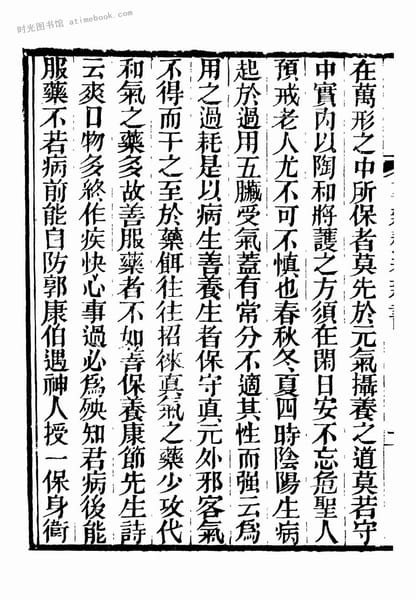 时光图书馆 atimebook.com
在萬形之中所保者莫先於元氣攝養之道莫若守
中實内以陶和將護之方須在閑日安不忘危聖人
預戒老人尤不可不慎也春秋冬夏四時陰陽生病
起於過用五臟受氣蓋有常分不適其性而強云爲
用之過耗是以病生善養生者保守真元外邪客氣
不得而干之至於藥餌往往招徠真氣之藥少攻代
和氣之藥多故善服藥者不如善保養康節先生詩
云爽口物多終作疾快心事過必爲殃知君病後能
服藥不若病前能自防郭康伯遇神人授一保身衛